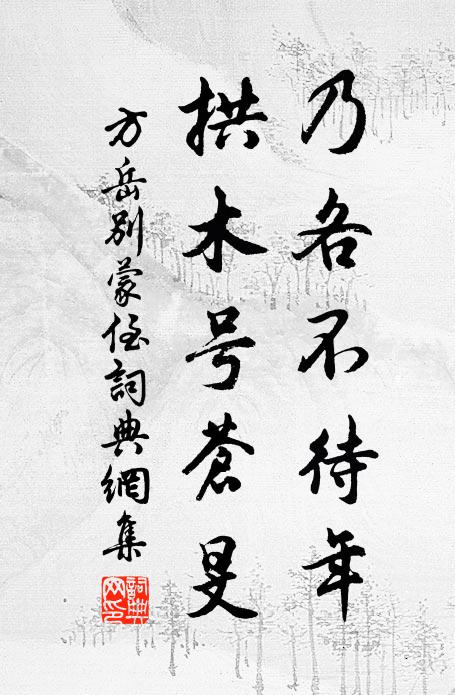 乃各不待年
拱木号蒼旻
方岳别蒙侄詞典網集
詞典网印